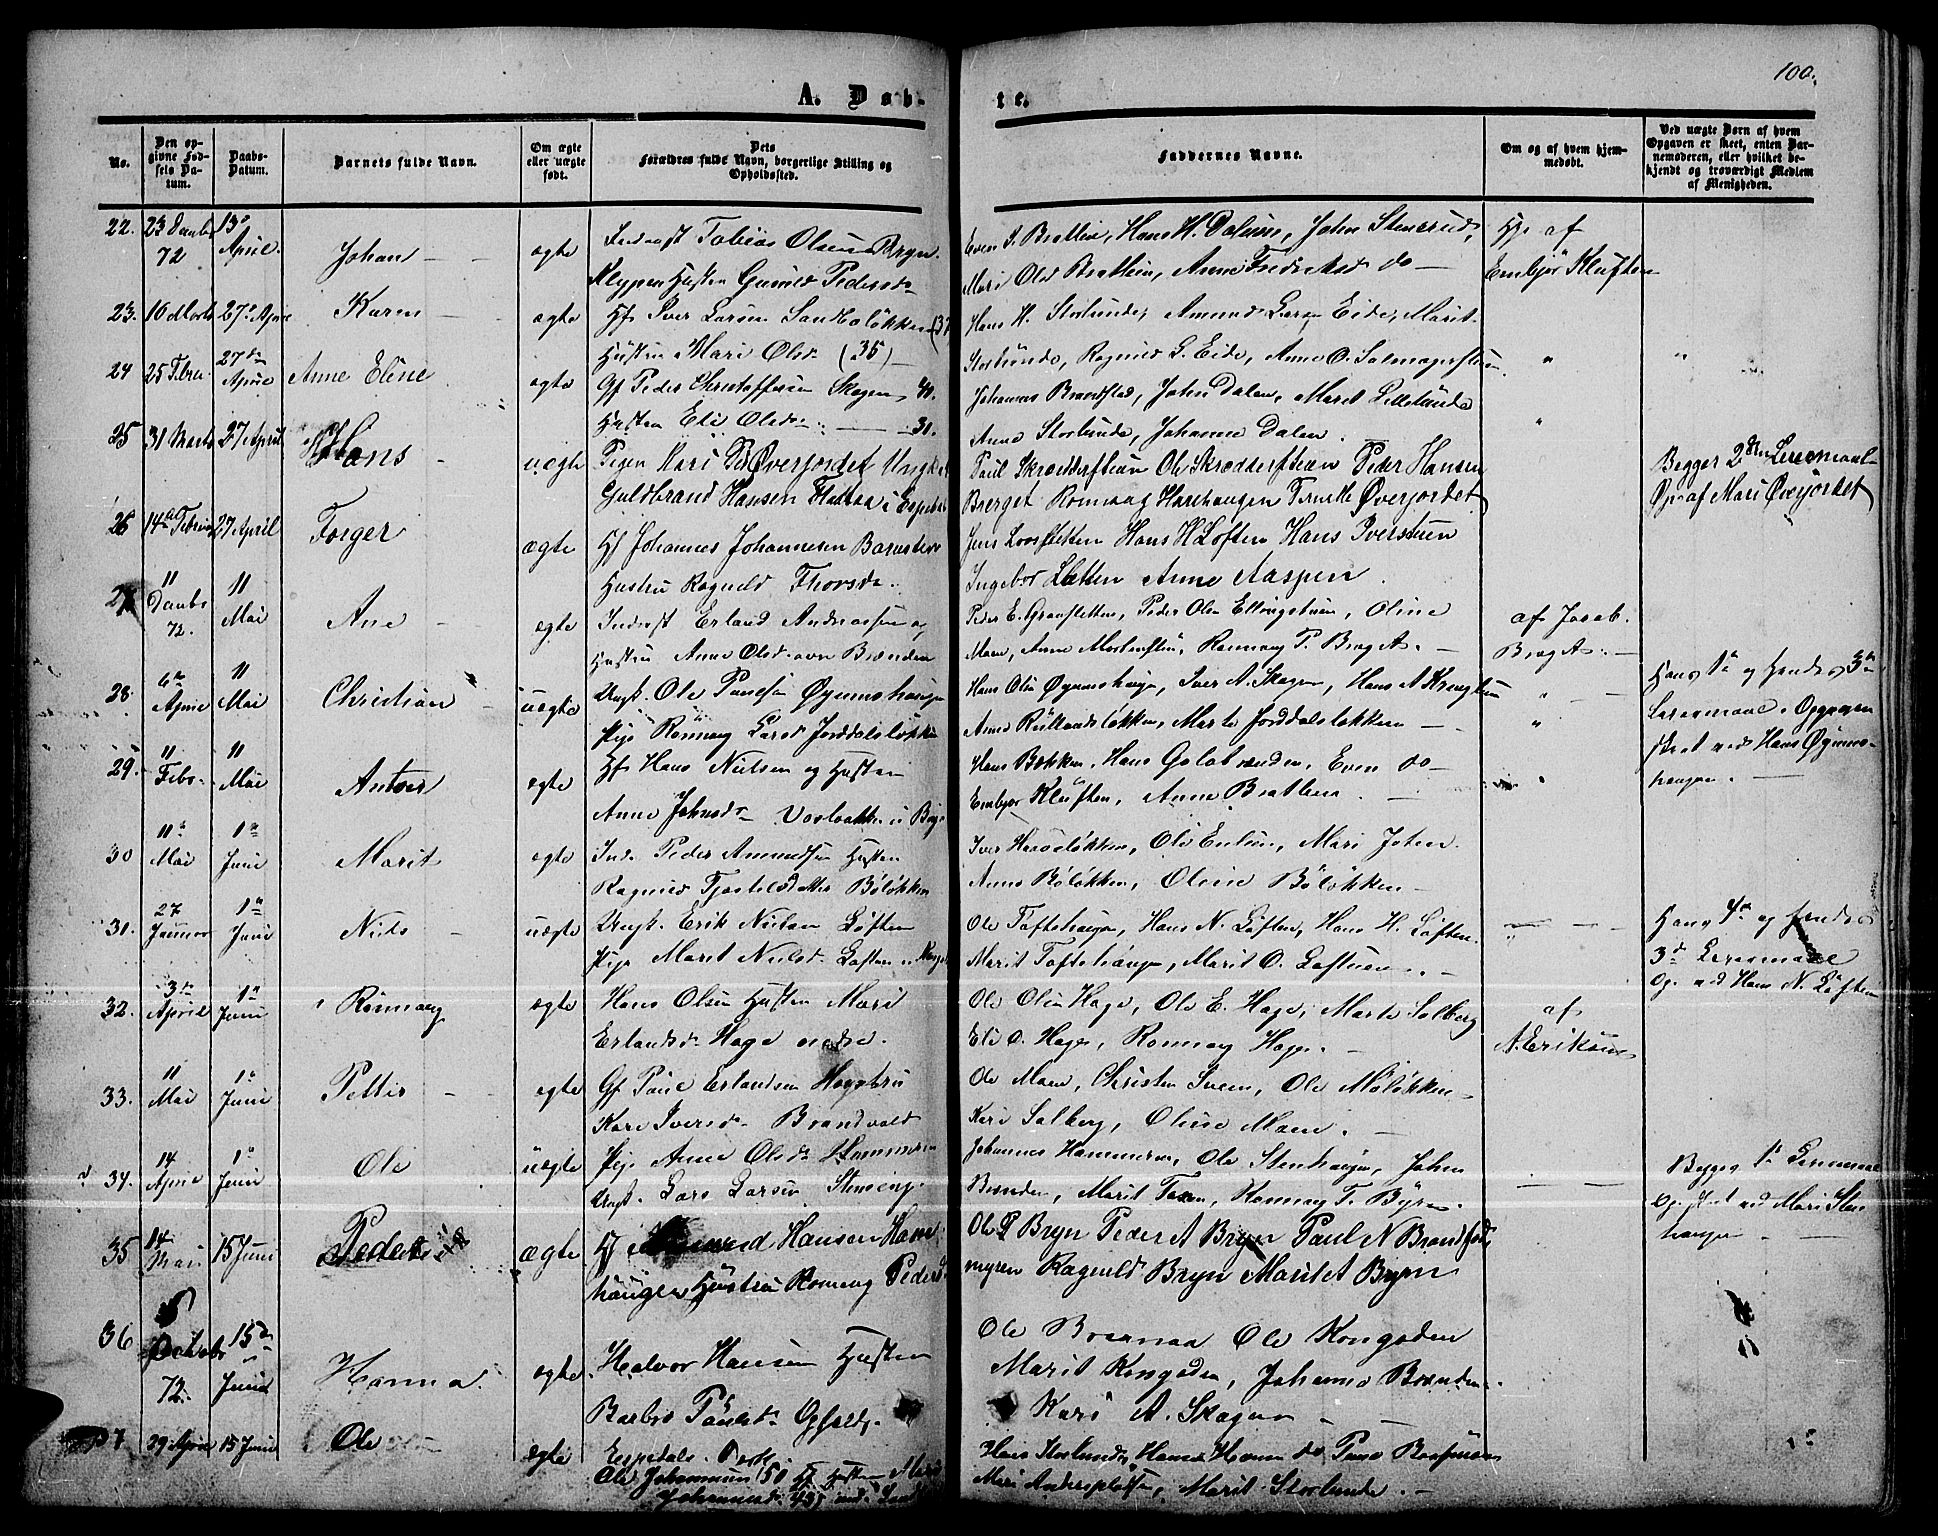 100.
A. Døb-
te.
No.
Den opgivne Fødsels Datum.
Daabs-Datum.
Barnets fulde Navn.
Om ægte eller uægte født.
Dets Forældres fulde Navn, borgerlige Stilling og Opholdssted.
Faddernes Navne.
Om og af hvem hjemmedøbt.
Ved uægte Børn af hvem Opgaven er skeet, enten Barnemoderen, eller hvilket bekjendt og troværdigt Medlem af Menigheden.
22. 23 72 13de April. Johan ægte Inderst Tobias Olsen Bryn
Klyppen Husten Gunild Pedersd.
Even S. Bratlien, Hans H. Dalum, Johan Stenerud,
Mari Olsd Bratlien, Anne Fredriksd do
Hj. af
Embjør Kluften
23. 16 Marts 27de April Karen ægte Hf Iver Larsen Sandboløkken (37
Hustru Mari Olsd. (35)
Hans H. Storlunde, Amund Larsen Eide, Marit
Storlunde, Ragnild G. Eide, Anne O.
24 25 Febru 27de April Anne Eline ægte Gf Peder Christoffersen Skogen, 40.
Husten Eli Olsd. 31.
Johannes Brandstad, John Dalen, Marit Lillelunde
Anne Storlunde, Johanne Dalen.
25 31 Marts 27 April Hans uægte Pigen Mari Øverjordet Ungk
Guldbrand Hansen Flaata i Espedal
Paul Skrædderstuen Ole Skrædderstuen Peder Hansen
Berget Romaag Harehaugen Øverjordet
Begges 2den Leiermaal
Op. af Mari Øverjordet
26 14de Februar 27 April Torger ægte Hf Johannes Johannesen
Hustru Ragnild Thorsd.
Jens Loosletten Hans H Løften Hans Iverstuen
Ingebor Sletten Anne Aaspen.
27 11 72. 11 Mai Ane ægte Inderst Erland Andreassen og
Hustru Anne Olsd. øvre Brænden
Peder E. Gransletten, Peder Olsen Ellingstuen, Oline
Moen, Anne Mortenstuen, Romaag P. Brag A.
af Jacob
Brag A.
28. 6te April 11 Mai Christian uægte Ungk. Ole Paulsen Øyumshaugen
Pige Romaag Larsd Jorddalsløkken
Hans Olsen Øyumshaugen, Iver A. Skogen, Hans A
Anne Rullandsløkken, Marte Jorddalsløkken
Hans 1ste og hendes 3die
Leiermaal. Opgaven
skeet ved Hans Øyums-
haugen.
29. 11 Febr. 11 Mai Anton ægte Hf Hans Nielsen og Husten
Anne Johnsd.
Hans Bakken, Hans Golabrænden, Even do
Embjør Kluften, Anne Bratlien.
30 11te Mai 1ste Juni Marit ægte Ind. Peder Amundsen Husten
Ragnild Tjostelsdatter Bøløkken
Iver Haaveløkken, Ole Enlien, Mari John
Anne Bøløkken, Oline Bøløkken
31. 27 Januar 1ste Juni Niels uægte Ungk. Erik Nielsen Løften
Pige Marit Nielsd. Løften
Ole Toftehaugen, Hans N. Løften, Hans H. Løften
Marit Toftehaugen, Marit O. Loftuen.
Hans 4de og hendes
3de Leiermaal
Og. ved Hans N. Løften
32. 3de April 1ste Juni Romaag ægte Hans Olsen Husten Mari
Erlandsd. Hage nedre.
Ole Olsen Hage, Ole E. Hage, Marte Solberg
Eli O. Hage, Romaag Hage.
af
A. Eriksen
33. 11 Mai 1ste Juni Petter ægte Gf Paul Erlandsen
Kari Iversd. Brandvold
Ole Moen, Christen Sveen, Ole Moløkken
Kari Solberg, Oline Moen.
34. 14 April 1ste Juni Ole uægte Pige Anne Olsd. Hammeren
Ungk. Lars Larsen
Johannes Hammeren, Ole Stenhaugen, John
Brænden, Marit Toen, Romaag T. Byren.
Begges 1ste Leiermaal
Op. skeet ved Mari Sten
haugen
35 14 Mai 15 Juni Peder ægte Hf Amund Hansen
haugen Hustru Romaag Pedersd
Ole P Bryn Peder A Bryn Paul N Brandstad
myren Ragnild Bryn Marit Bryn
36 8 Octobr 72. 15de Juni Hanna ægte Halvor Hansen Husten
Barbro Paulsd. Opsal.
Ole Bværnaa Ole Kongsden
Marit Kongsden, Johanne Brænden.
Kari A. Skogen
37 29 April 15 Juni Ole ægte Espedals
Ole Johannesen 50 Hf Husten Mari
Johannesd. 43
Hans Storlunde, Hans Moen do
Mari Marit Storlunde.